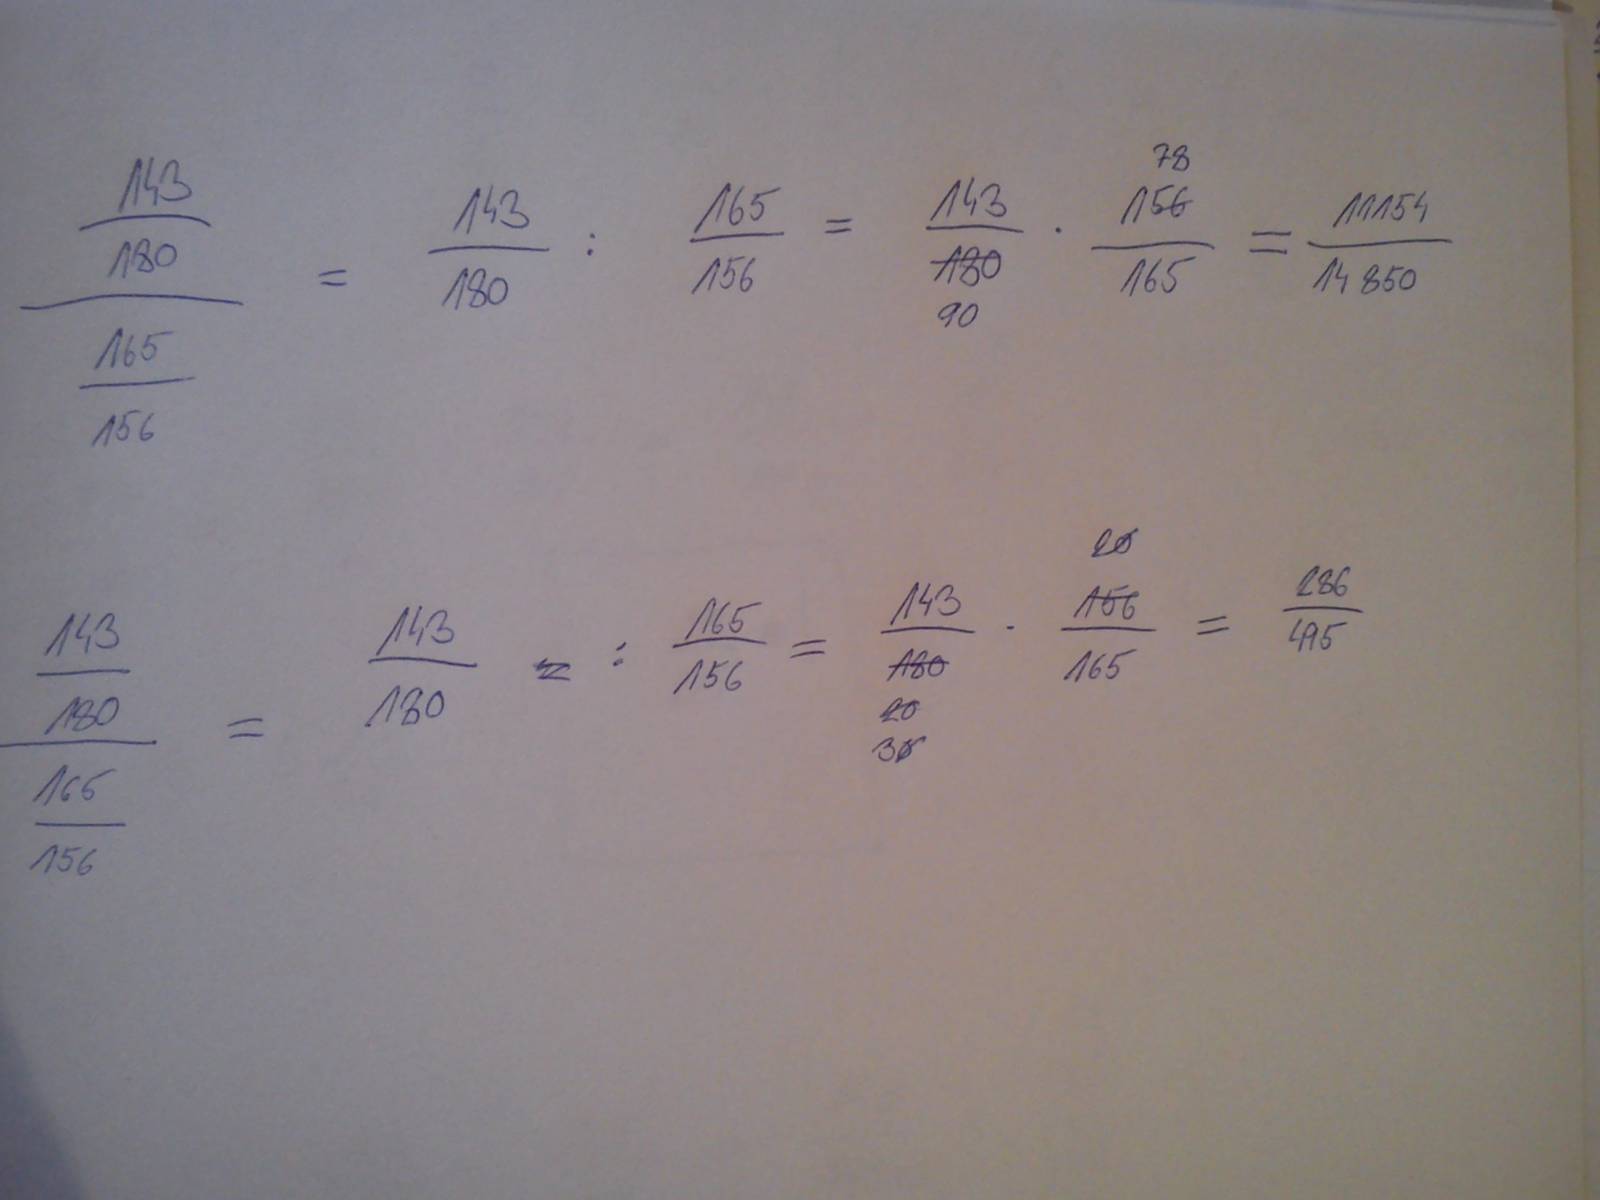 143/180 / 165/156 = 143/180 : 165/156 = 143/180 90 · 78 156/165 = 11154/14850
143/180 / 165/156 = 143/180 : 165/156 = 143/180 20 30 · 20 156/165 = 286/495